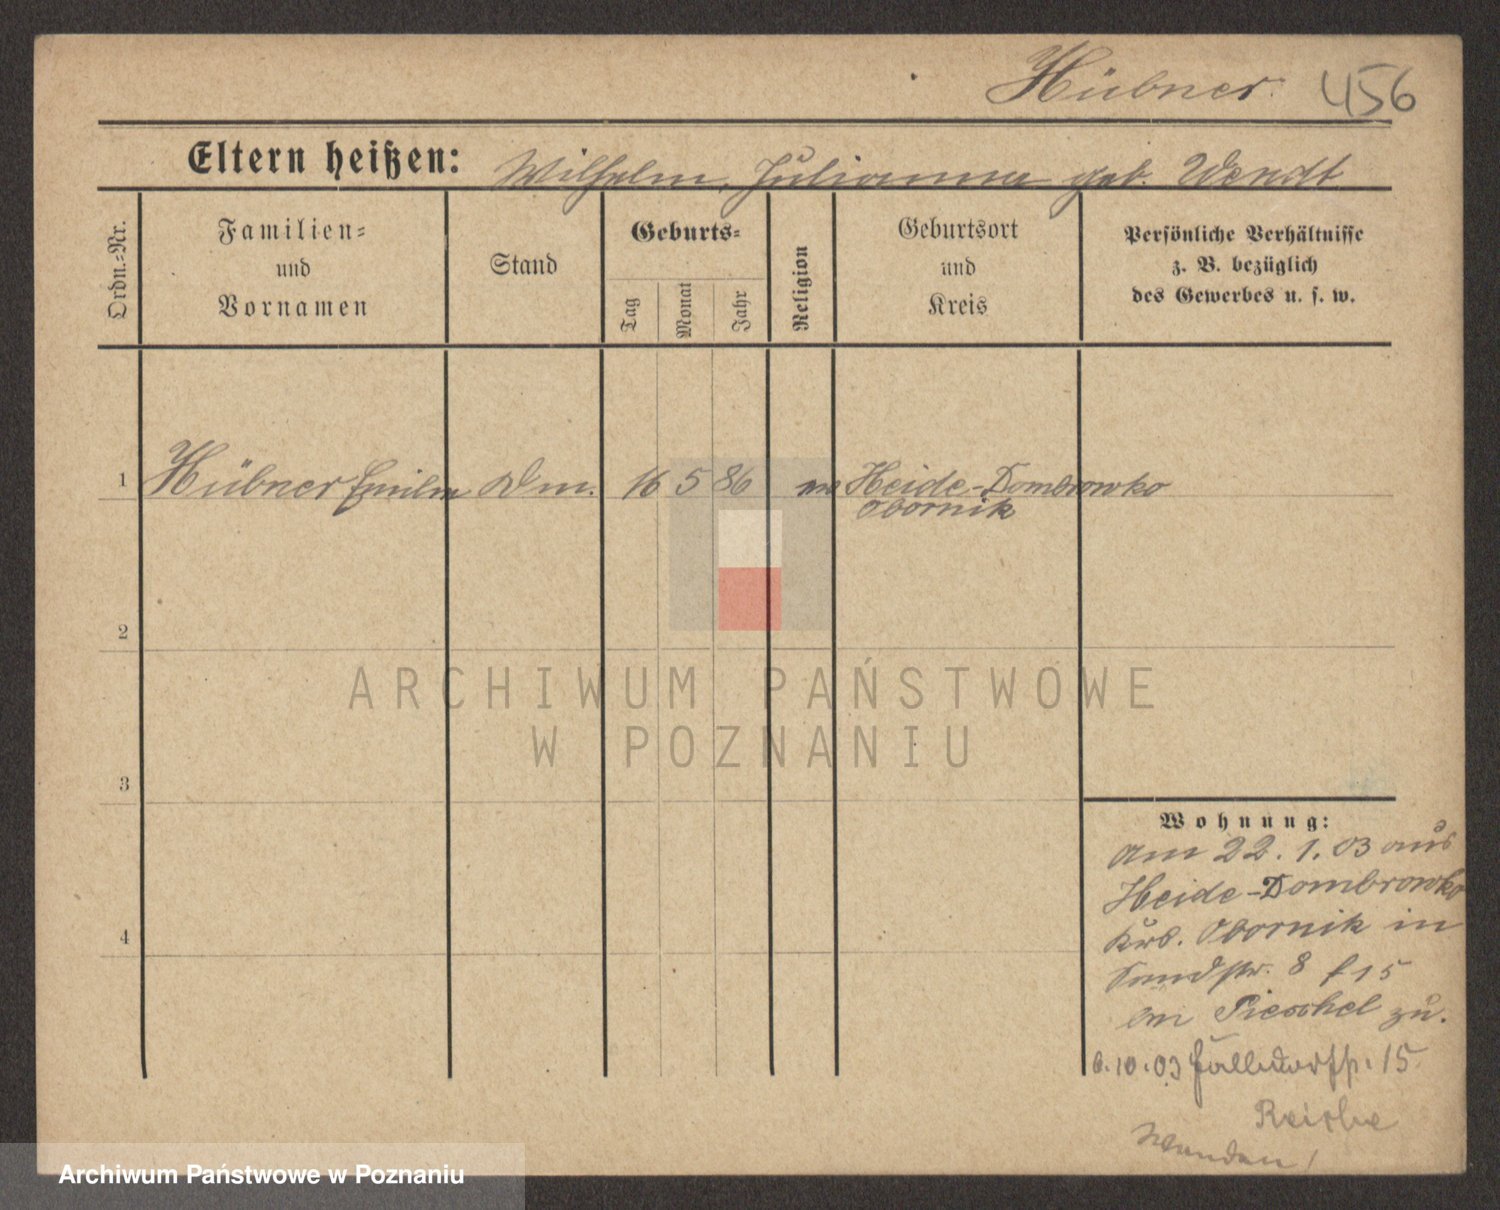 Hübner. 456
Eltern heißen: Wilhelm, Julianna geb. Wendt
Ordn.-Nr.
Familien-
und
Vornamen
Stand
Geburts-
Tag
Monat
Jahr
Religion
Geburtsort
und
Kreis
Persönliche Verhältnisse
z. B. bezüglich
des Gewerbes u. s. w.
1 Hübner 16 5 86 Heide-Dombrowko
Obornik
2
3
4
Wohnung:
Am 22. 1. 03 aus
Heide-Dombrowko
Krs. Obornik in
8 15
Pieschel zu.
6.10.03 15
ARCHIWUM PAŃSTWOWE
W POZNANIU
Archiwum Państwowe w Poznaniu